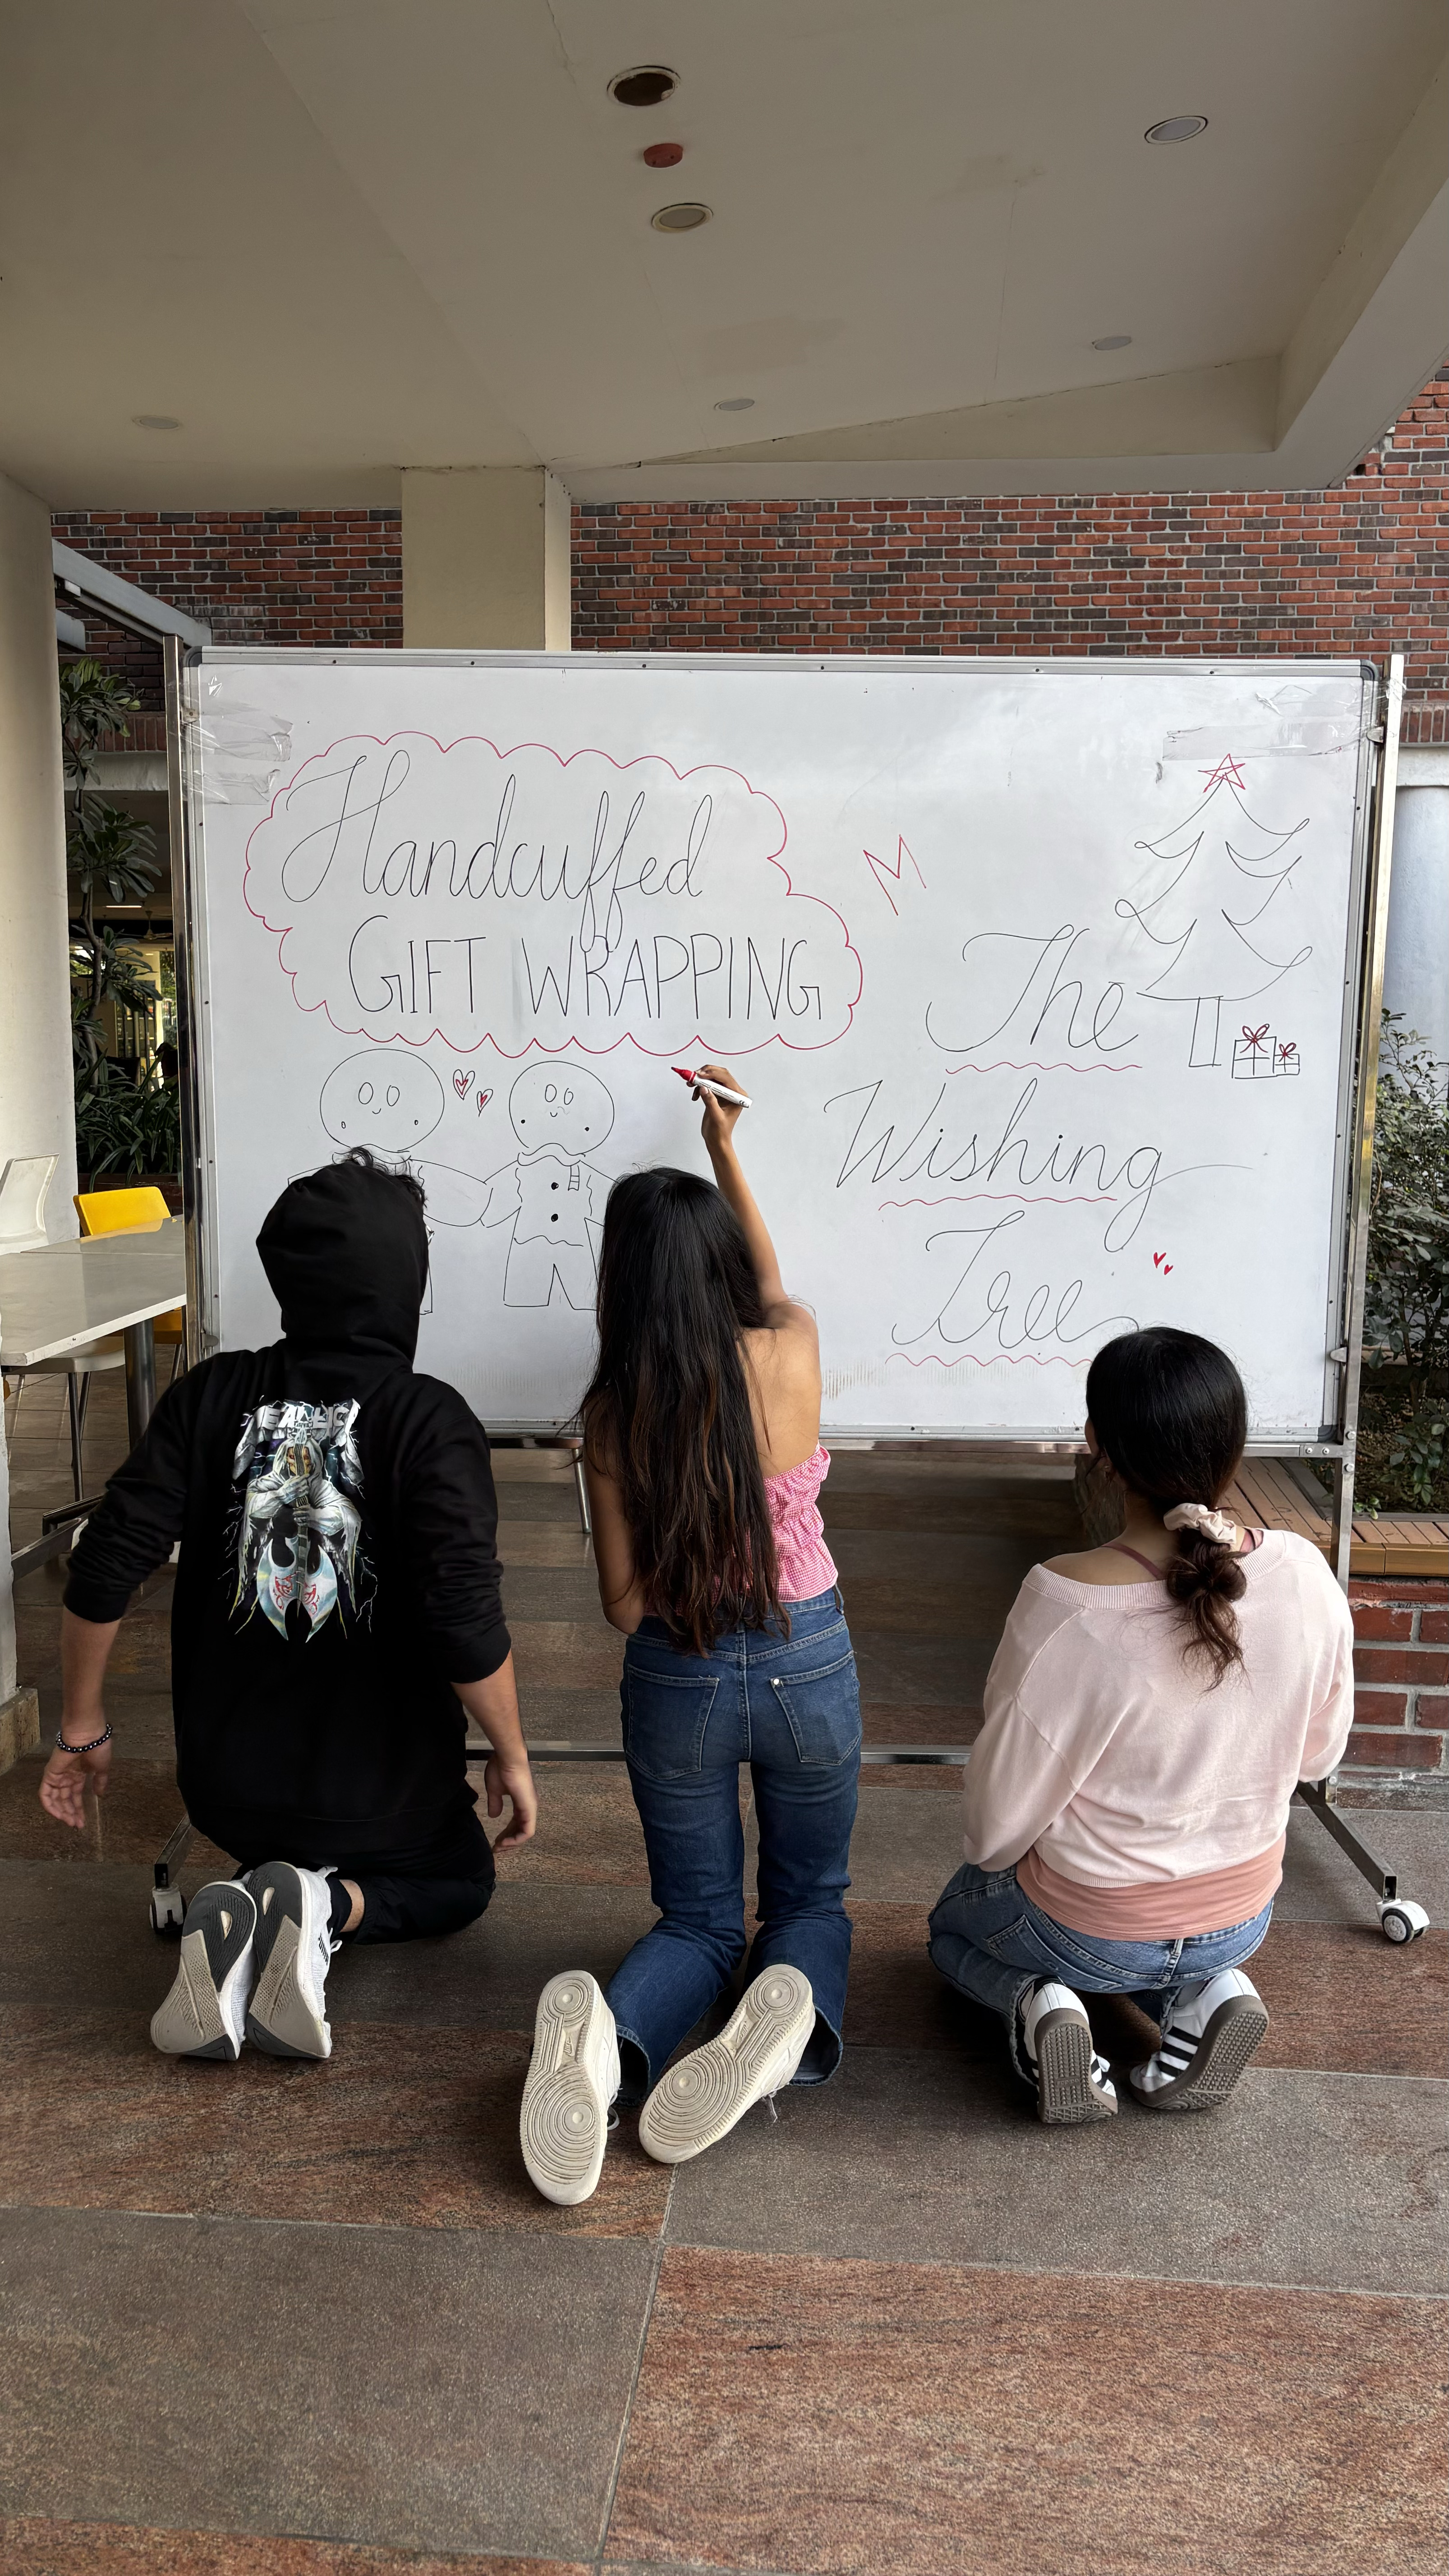 Handcuffed
GIFT WRAPPING
M
The
Wishing
Tree